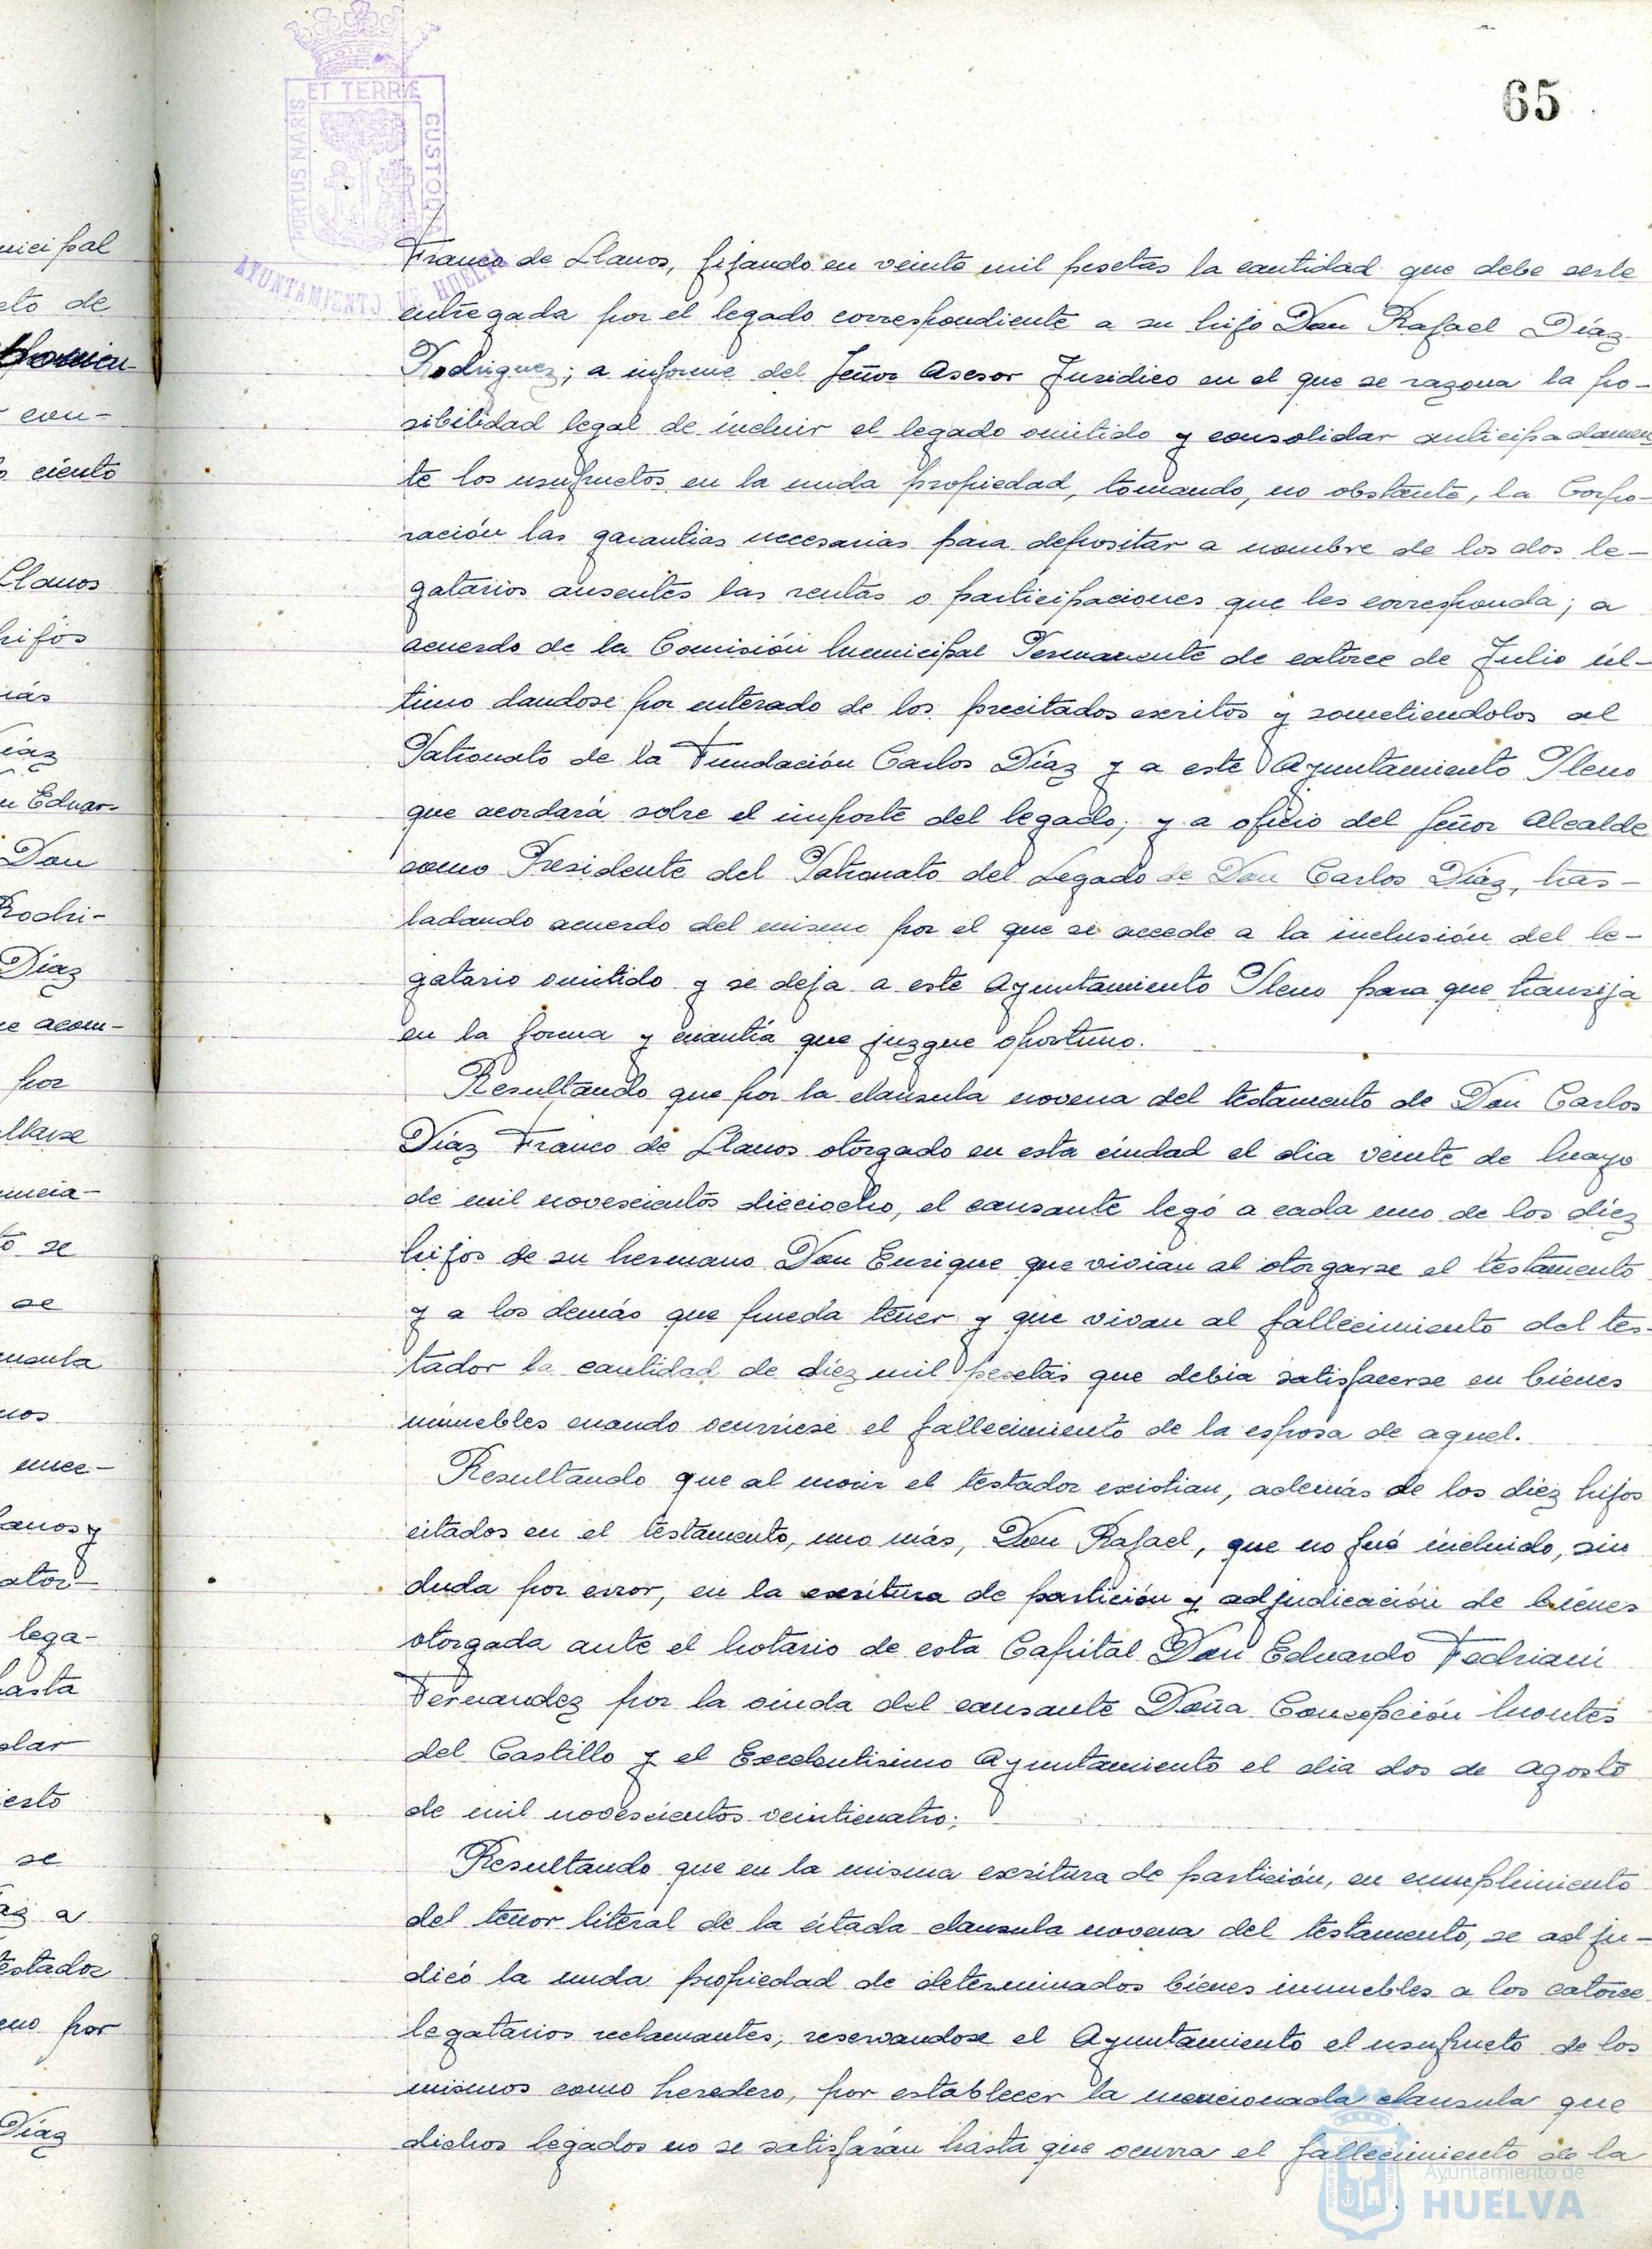 65
PORTUS MARIS
ET TERRÆ
CUSTODIA
AYUNTAMIENTO DE HUELVA
Franco de Llanos, fijando en veinte mil pesetas la cantidad que debe serle
entregada por el legado correspondiente a su hijo Don Rafael Díaz
Rodriguez; a informe del Señor Asesor Jurídico en el que se razona la po-
sibilidad legal de incluir el legado omitido y consolidar anticipadamen
te los usufructos en la nuda propiedad, tomando, no obstante, la Corpo-
ración las garantias necesarias para depositar a nombre de los dos le-
gatarios ausentes las rentas o participaciones que les corresponda; a
acuerdo de la Comisión Municipal Permanente de catorce de Julio úl-
timo dandose por enterado de los precitados escritos y sometiendolos al
Patronato de la Fundación Carlos Díaz y a este Ayuntamiento Pleno
que acordará sobre el importe del legado; y a oficio del Señor Alcalde
como Presidente del Patronato del Legado de Don Carlos Díaz, tras-
ladando acuerdo del mismo por el que se accede a la inclusión del le-
gatario omitido y se deja a este Ayuntamiento Pleno para que transija
en la forma y cuantía que juzgue oportuno.
Resultando que por la clausula novena del testamento de Don Carlos
Díaz Franco de Llanos otorgado en esta ciudad el dia veinte de Mayo
de mil novescientos dieciocho, el causante legó a cada uno de los diez
hijos de su hermano Don Enrique que vivian al otorgarse el testamento
y a los demás que pueda tener y que vivan al fallecimiento del tes-
tador la cantidad de diez mil pesetas que debia satisfacerse en bienes
inmuebles cuando ocurriese el fallecimiento de la esposa de aquel.
Resultando que al morir el testador existian, además de los diez hijos
citados en el testamento, uno más, Don Rafael, que no fué incluido, sin
duda por error, en la escritura de partición y adjudicación de bienes
otorgada ante el Notario de esta Capital Don Eduardo Fedriani
Fernandez por la viuda del causante Doña Concepción Montes
del Castillo y el Excelentisimo Ayuntamiento el dia dos de Agosto
de mil novescientos veinticuatro;
Resultando que en la misma escritura de partición, en cumplimiento
del tenor literal de la citada clausula novena del testamento, se adju-
dicó la nuda propiedad de determinados bienes inmuebles a los catorce
legatarios reclamantes, reservandose el Ayuntamiento el usufructo de los
mismos como heredero, por establecer la mencionada clausula que
dichos legados no se satisfarán hasta que ocurra el fallecimiento de la
Ayuntamiento de
HUELVA
nicipal
eto de
con-
o ciento
Llanos
hijos
más
Díaz
n Eduar-
Don
Rodri-
Díaz
e acom-
por
llarse
uncia-
to se
se
nos
anos y
ator-
lega-
hasta
olar
esto
se
az a
testador
eno por
Díaz